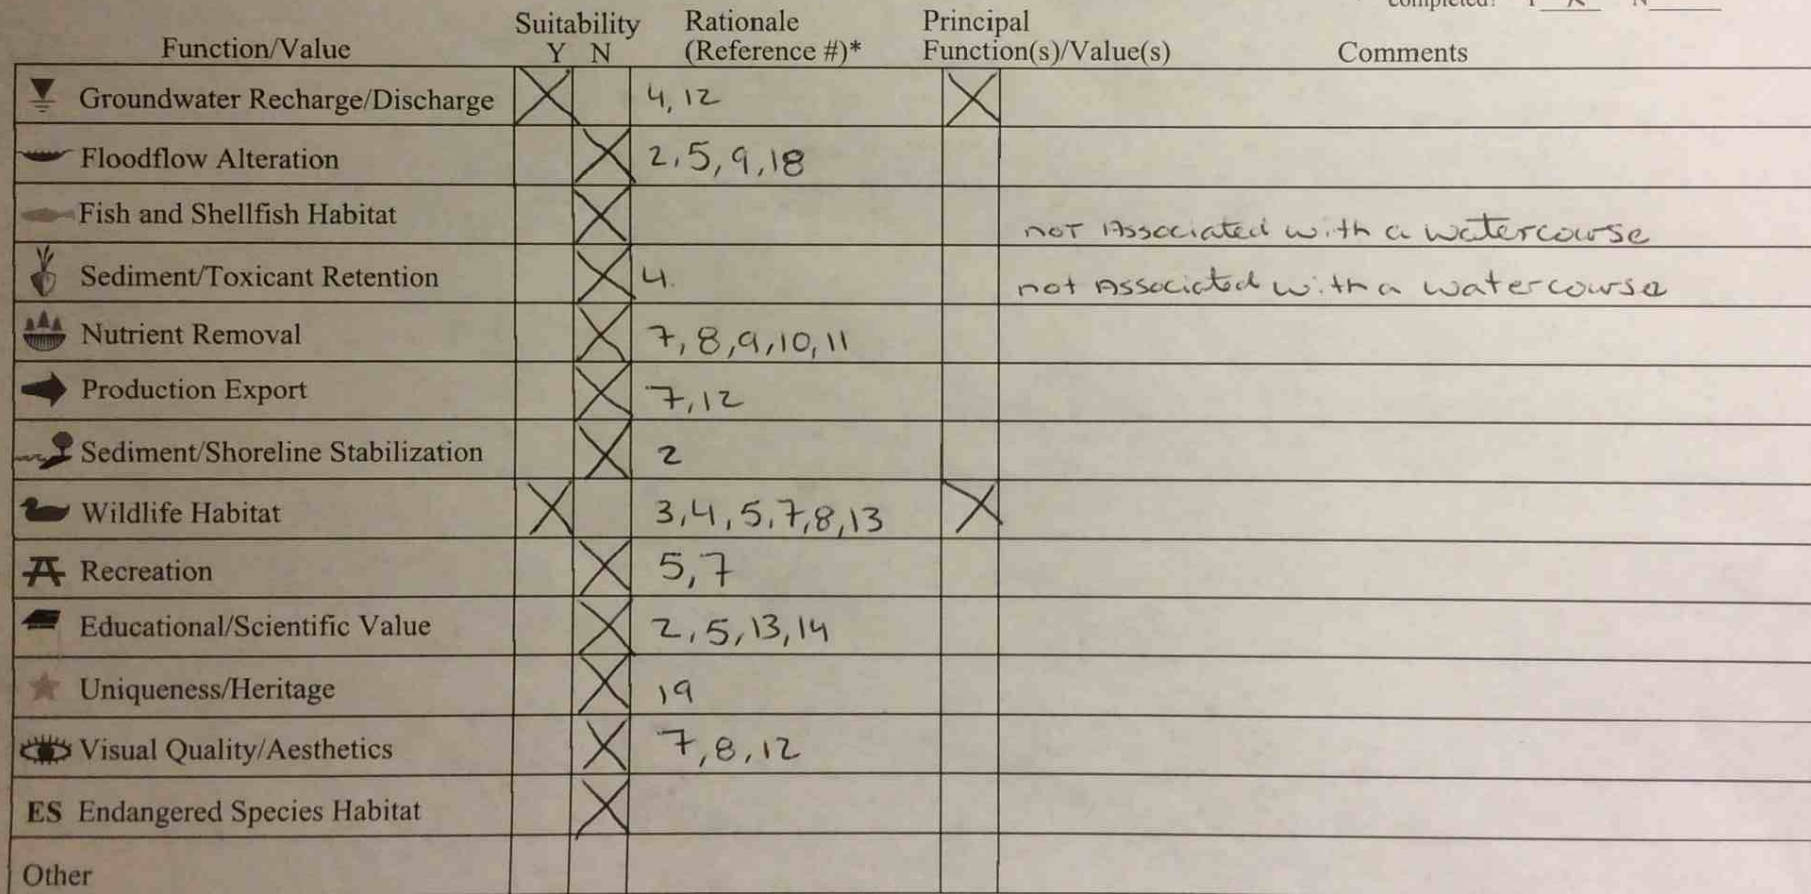 completed? Y X N
Suitability Rationale Principal
Function/Value Y N (Reference #)* Function(s)/Value(s) Comments
Groundwater Recharge/Discharge X 4, 12 X
Floodflow Alteration X 2, 5, 9, 18
Fish and Shellfish Habitat X not Associated with a watercourse
Sediment/Toxicant Retention X 4. not Associated with a watercourse
Nutrient Removal X 7, 8, 9, 10, 11
Production Export X 7, 12
Sediment/Shoreline Stabilization X 2
Wildlife Habitat X 3, 4, 5, 7, 8, 13 X
Recreation X 5, 7
Educational/Scientific Value X 2, 5, 13, 14
Uniqueness/Heritage X 19
Visual Quality/Aesthetics X 7, 8, 12
ES Endangered Species Habitat X
Other